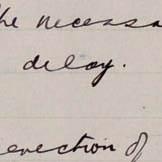 the necessa
delay.
erection of